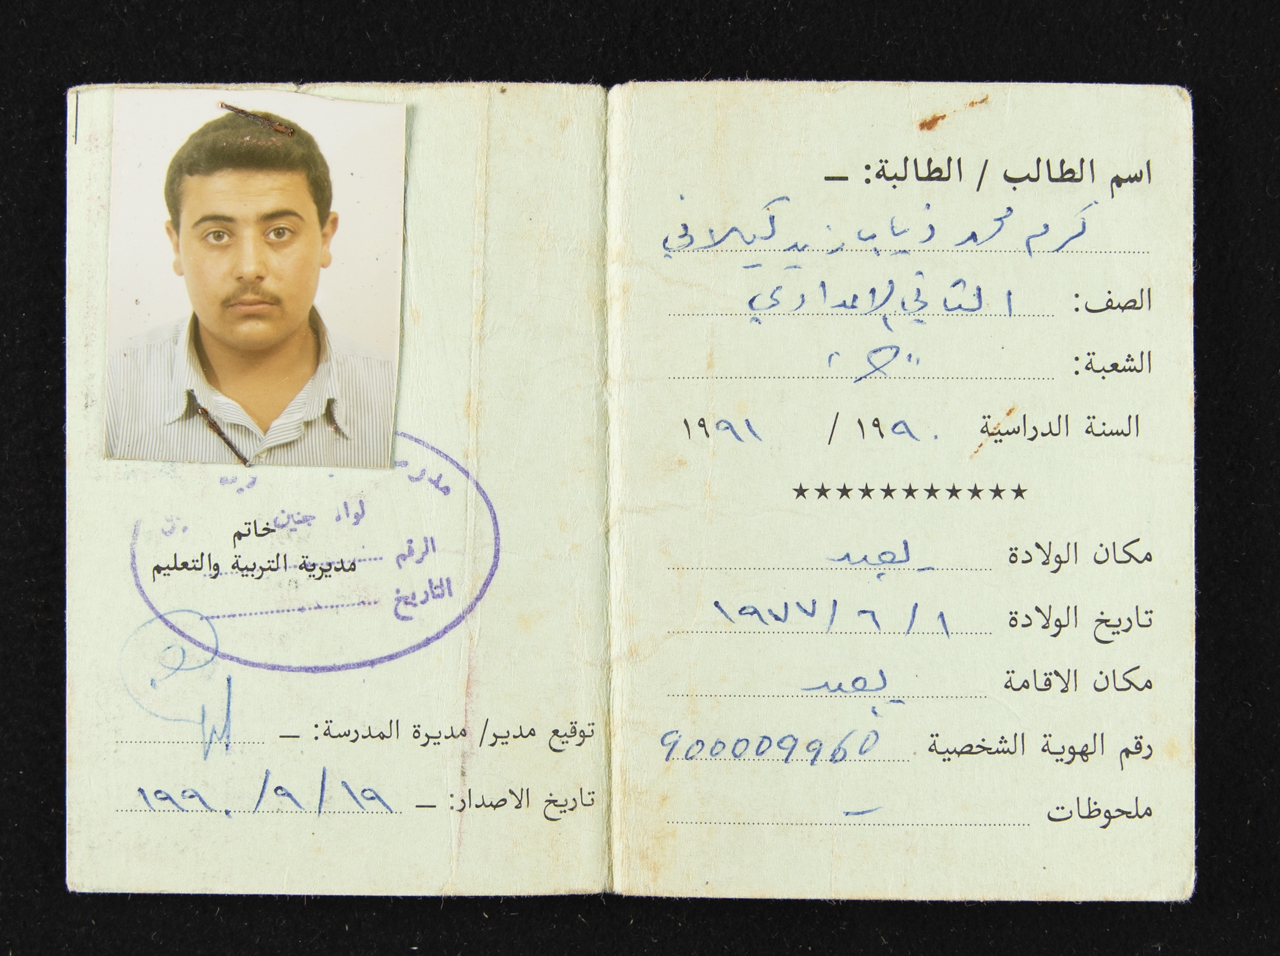 اسم الطالب / الطالبة: ـ
كرم محمد ذياب زيد كيلاني
الصف: الثاني الاعدادي
الشعبة:
السنة الدراسية ١٩٩٠ / ١٩٩١
★★★★★★★★★★★
مكان الولادة يعبد
تاريخ الولادة ١ / ٦ / ١٩٧٧
مكان الاقامة يعبد
رقم الهوية الشخصية 900009960
ملحوظات –
لواء جنين
خاتم
الرقم
مديرية التربية والتعليم
التاريخ
توقيع مدير/ مديرة المدرسة: ـ
تاريخ الاصدار: ـ ١٩ / ٩ / ١٩٩٠